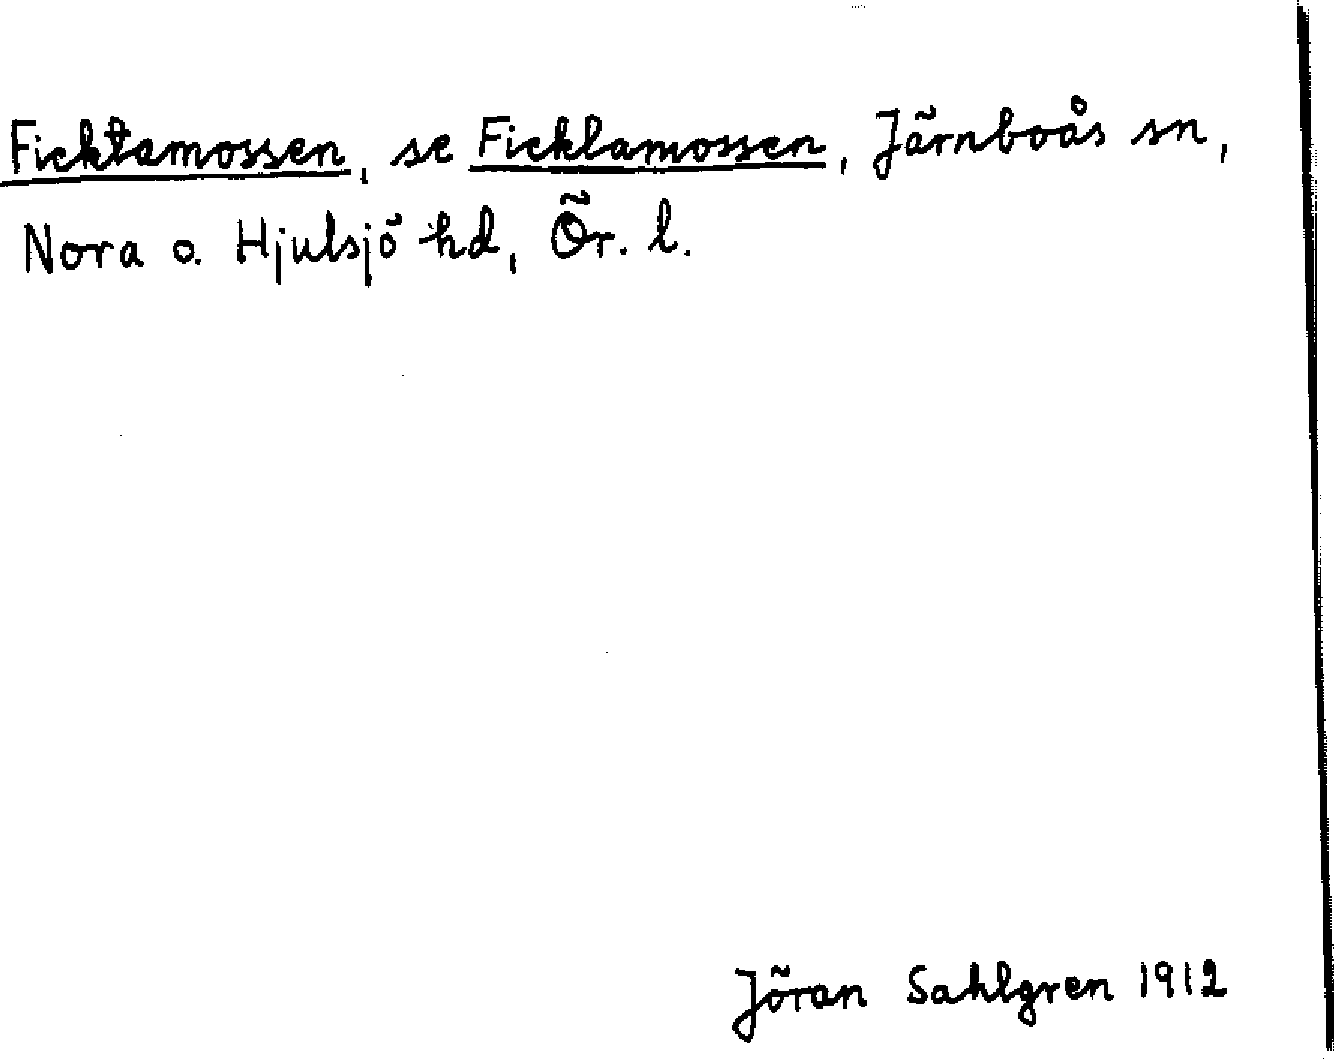 Ficktamossen, se Ficklamossen, Järnboås sn,
Nora o. Hjulsjö hd, Ör. l.
Jöran Sahlgren 1912